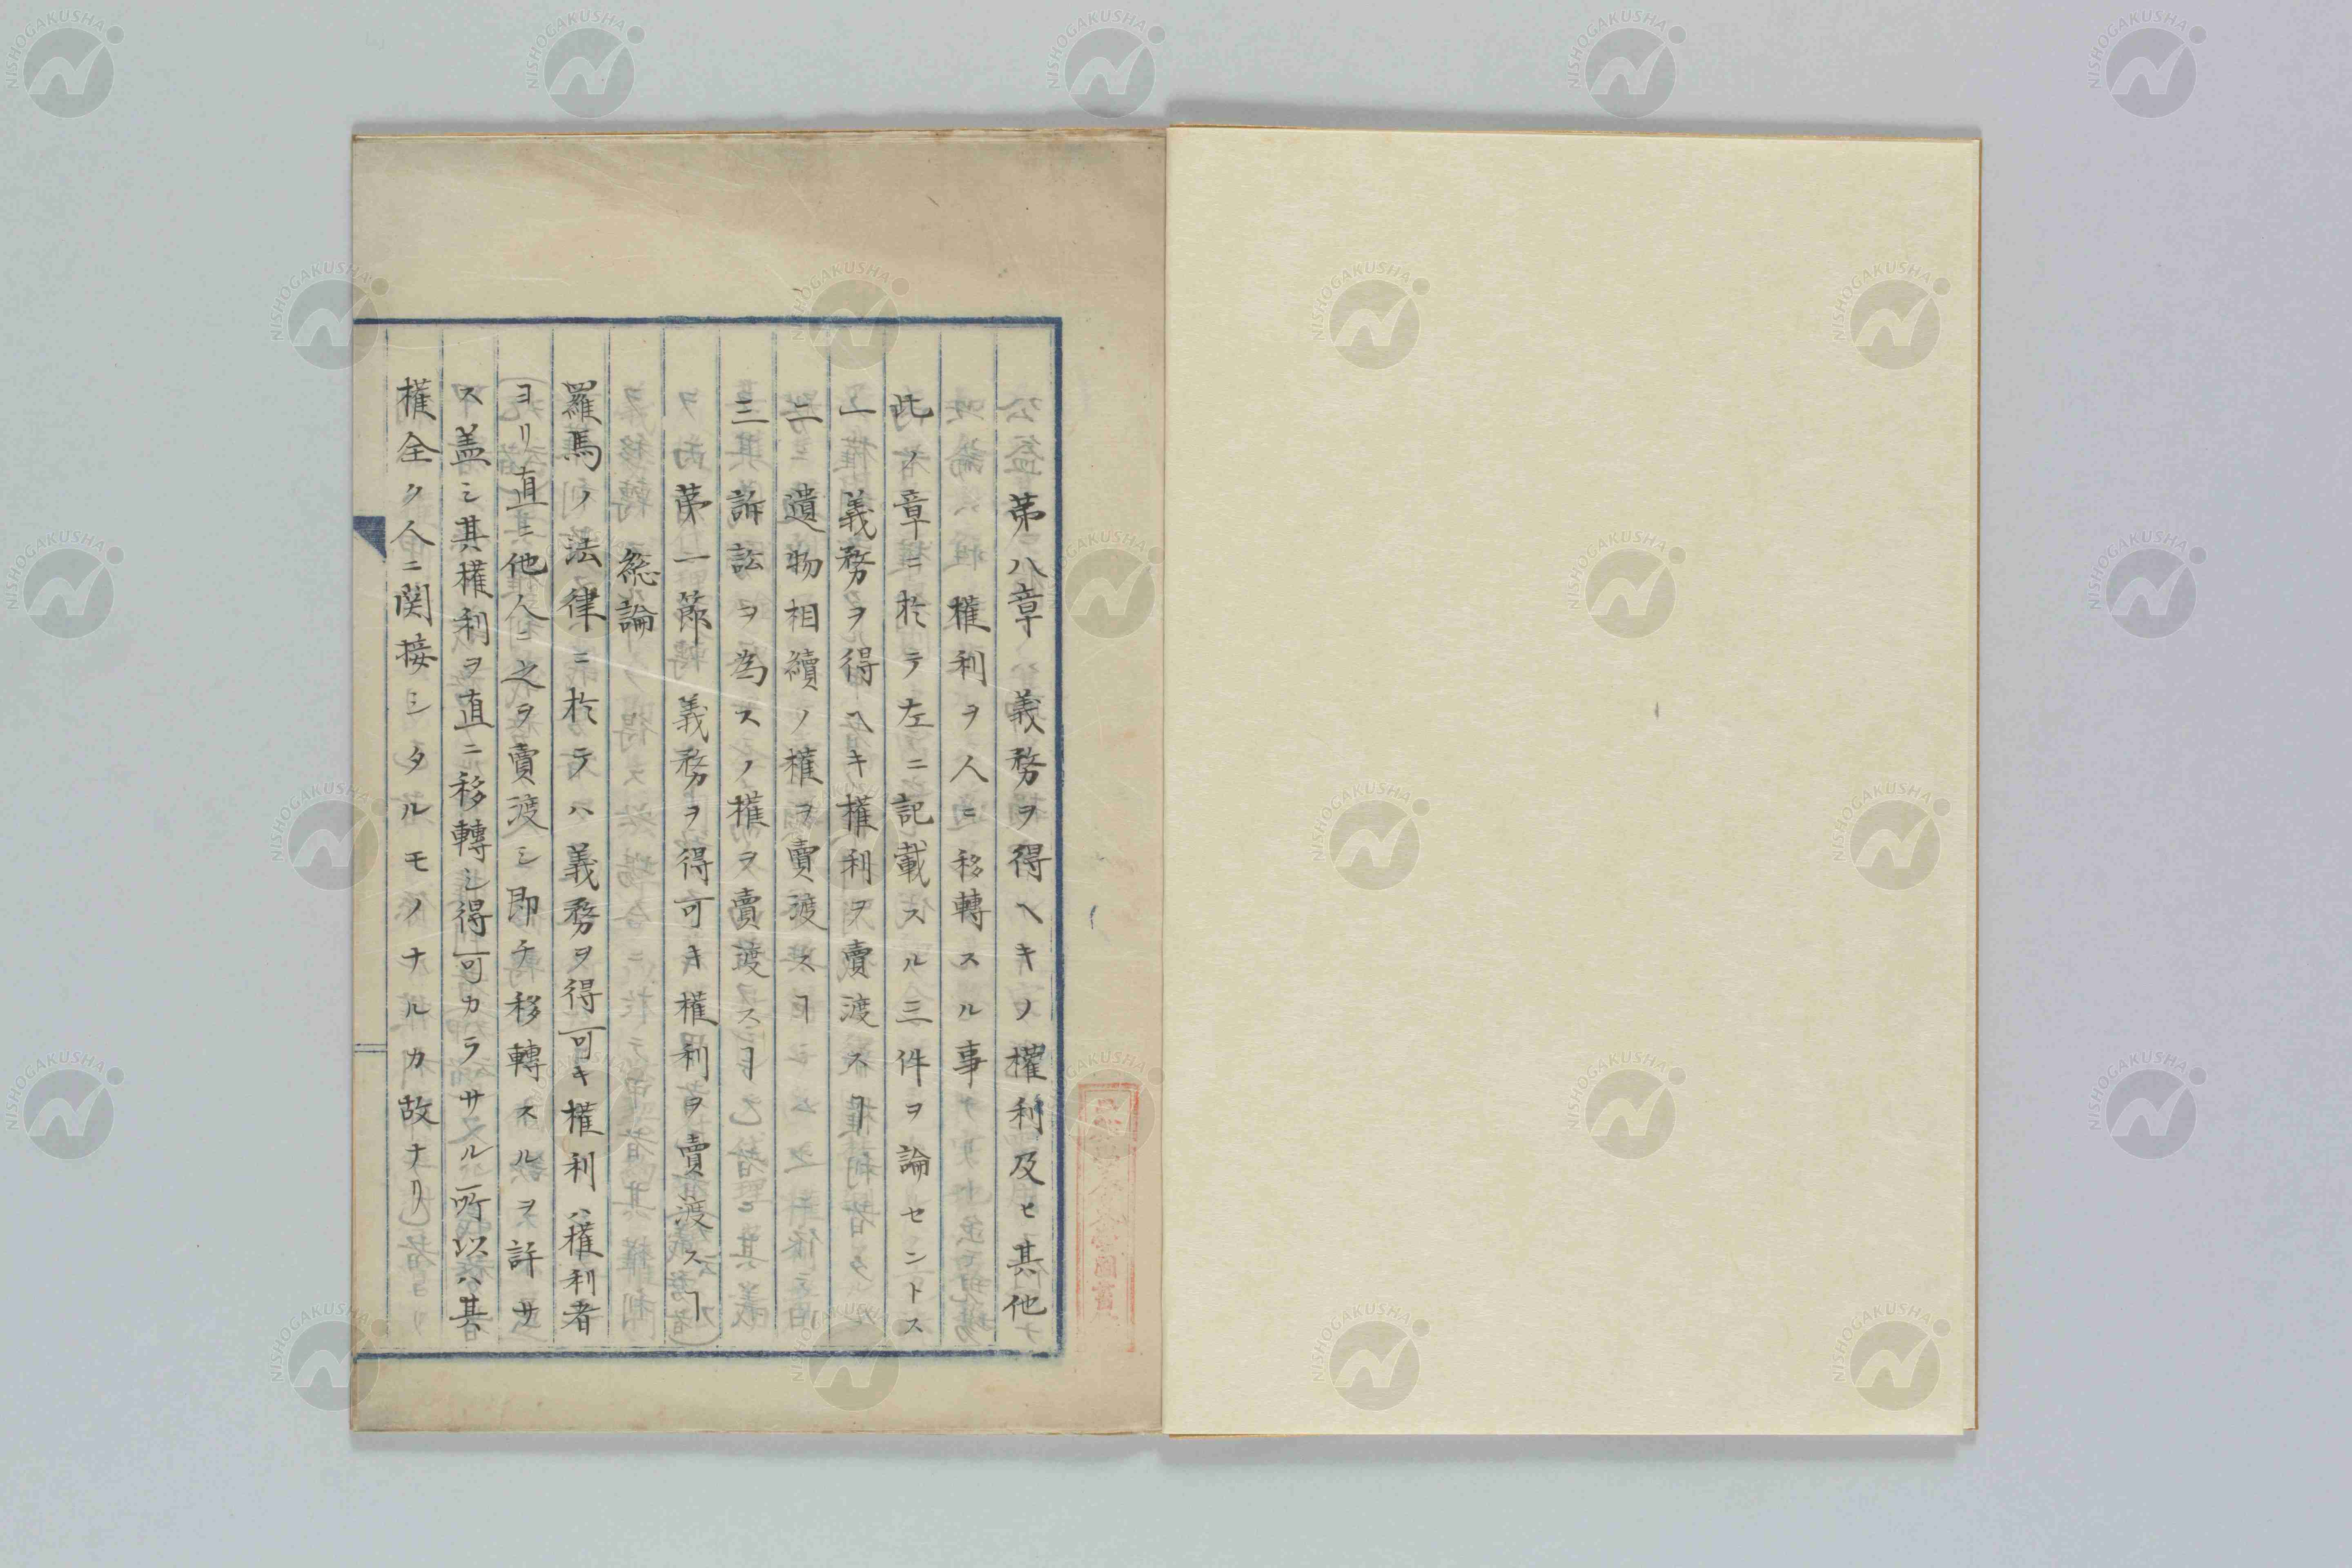 第八章 義務ヲ得ヘキノ權利及ヒ其他
權利ヲ人ニ移轉スル事
此ノ章ニ於テ左ニ記載スル三件ヲ論セントス
一 義務ヲ得ヘキ權利ヲ賣渡スヿ
二 遺物相續ノ權ヲ賣渡スヿ
三 訴訟ヲ為スノ權ヲ賣渡スヿ
第一節 義務ヲ得可キ權利ヲ賣渡スヿ
総論
羅馬ノ法律ニ於テハ義務ヲ得可キ權利ハ權利者
ヨリ直ニ他人ニ之ヲ賣渡シ即チ移轉スルヲ許サ
ス盖シ其權利ヲ直ニ移轉シ得可カラサル所以ハ其
權全ク人ニ関接シタルモノナルカ故ナリ
NISHOGAKUSHA